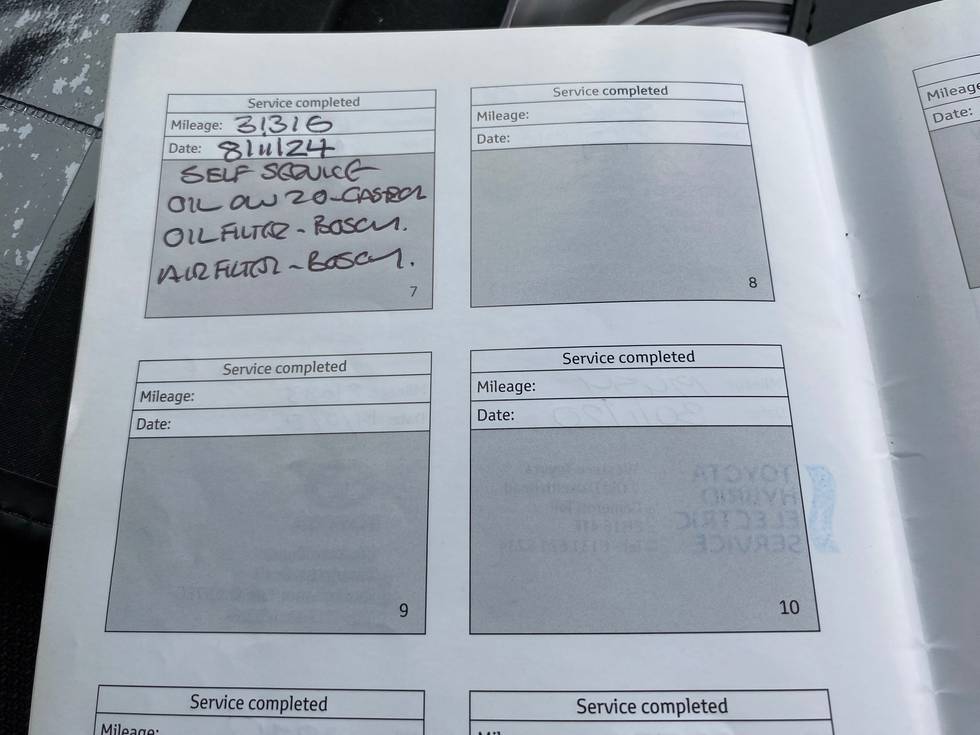 Service completed
Mileage: 31316
Date: 8/11/24
SELF SERVICE
OIL 0W20-CASTROL
OIL FILTER - BOSCH.
AIR FILTER - BOSCH.
7
Service completed
Mileage:
Date:
8
Mileage
Date:
Service completed
Mileage:
Date:
9
Service completed
Mileage:
Date:
10
TOYOTA
HYBRID
ELECTRIC
SERVICE
Service completed
Mileage:
Service completed